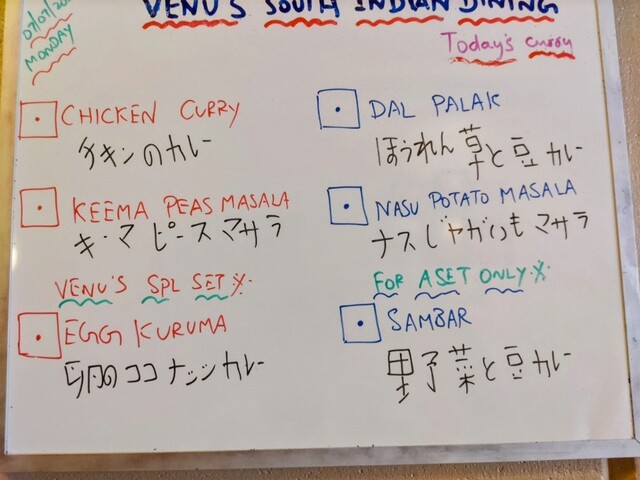 VENU'S SOUTH INDIAN DINING
MONDAY
Today's curry
CHICKEN CURRY
チキンのカレー
KEEMA PEAS MASALA
キーマ ピース マサラ
VENU'S SPL SET ※
EGG KURUMA
卵のココナッツカレー
DAL PALAK
ほうれん草と豆カレー
NASU POTATO MASALA
ナスじゃがいも マサラ
FOR A SET ONLY ※
SAMBAR
野菜と豆カレー